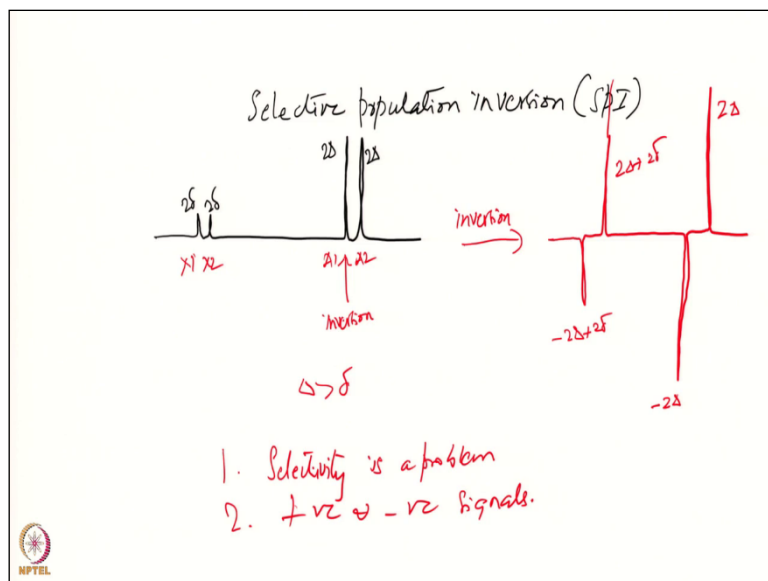 Selective population inversion (SPI)
2Δ
2Δ
2δ 2δ
2Δ
2Δ+2δ
inversion
X1 X2
A1 A2
inversion
-2Δ+2δ
-2Δ
Δ>δ
1. Selectivity is a problem
2. +ve & -ve signals.
NPTEL